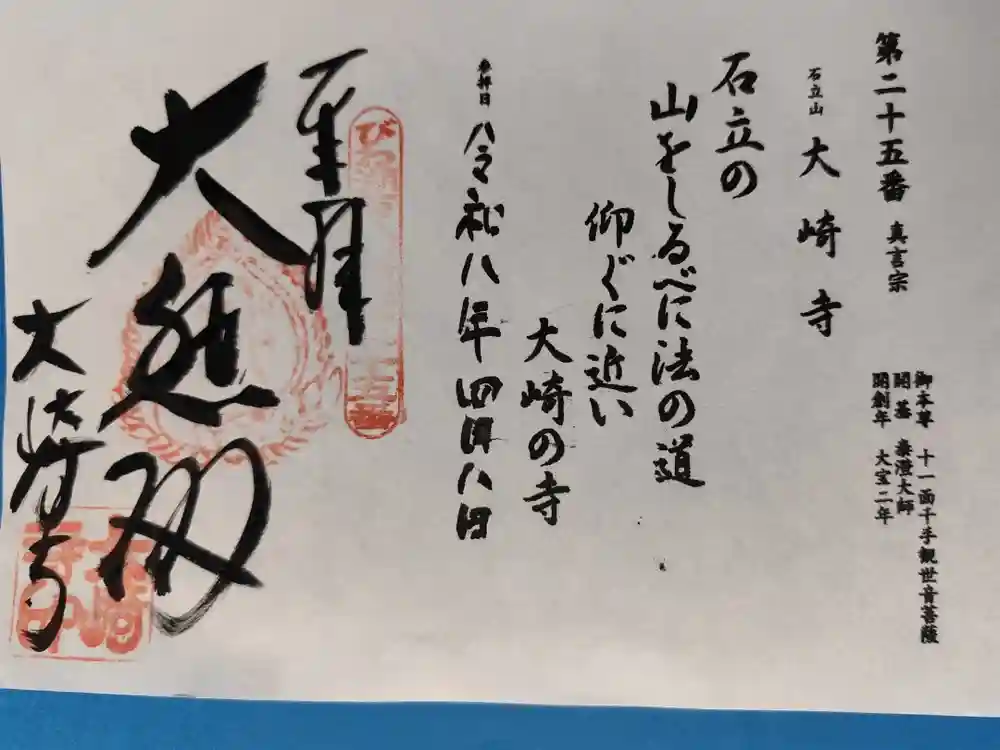 第二十五番 真言宗
御本尊 十一面千手観世音菩薩
開基 泰澄大師
開創年 大宝二年
石立山 大崎寺
石立の
山をしるべに法の道
仰ぐに近い
大崎の寺
参拝日 令和八年四月八日
奉拝
大悲閣
大崎寺
大崎寺印